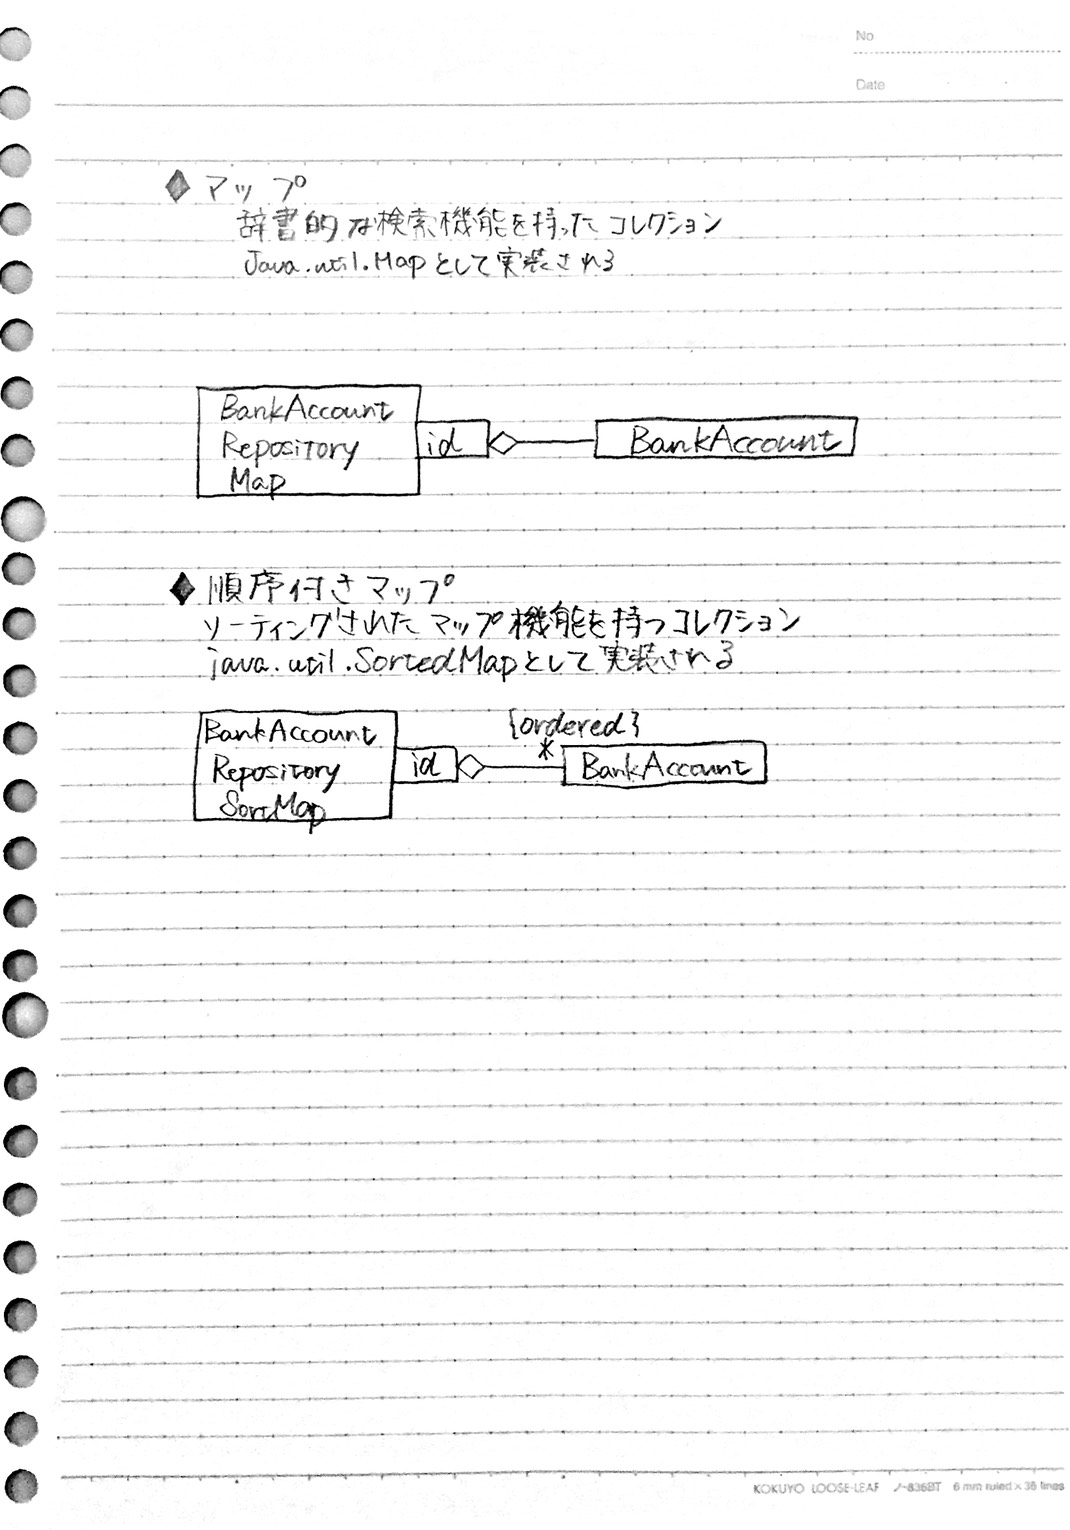 No
Date
◆ マップ
辞書的な検索機能を持ったコレクション
Java.util.Mapとして実装される
BankAccount
Repository
Map
id
BankAccount
◆ 順序付きマップ
ソーティングされたマップ機能を持つコレクション
java.util.SortedMapとして実装される
{ordered}
BankAccount
Repository
SortMap
id
*
BankAccount
KOKUYO LOOSE-LEAF ノ-836BT 6 mm ruled × 36 lines